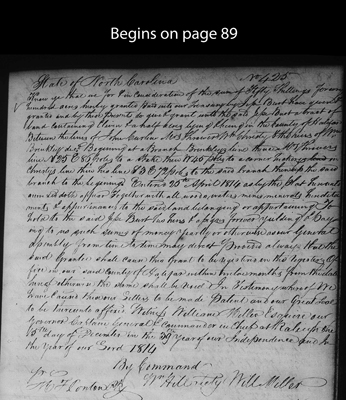 Begins on page 89
State of North Carolina No 425
Know ye that we for & in consideration of the sum of Fifty Shillings for every
hundred acres hereby granted paid into our Treasury by John Burt have given &
granted and by these presents do give & grant unto the said John Burt a tract of
land containing Eleven & a half acres lying & being in the County of
Between the lines of John
Brinkley dec'd Beginning at a Branch Brinkleys line thence
line S 25 E 83 poles to a Stake then N 45 poles to a corner
line then his line N 3 E 72 poles to the said branch thence up the said
branch to the beginning Entered 25th April 1814 as by the plat hereunto
annexed doth appear together with all woods waters mines minerals hereditaments
& appurtenances to the said land belonging or appertaining to
hold to the said John Burt his heirs & assigns forever yielding & Paying
to us such sums of money yearly or otherwise as our General
Assembly from time to time may direct Provided always that the
said Grantee shall cause this Grant to be registered in the registers Office
in our said County of within twelve months from the date
hereof otherwise the same shall be void In Testimony whereof We
have caused these our Letters to be made Patent and our Great Seal
to be hereunto affixed Witness William Miller Esquire our
Governor Captain General & Commander in Chief at Raleigh the
day of December in the 39th year of our Independence and in
the year of our Lord 1814
By Command
Wm Hill Secty Will Miller